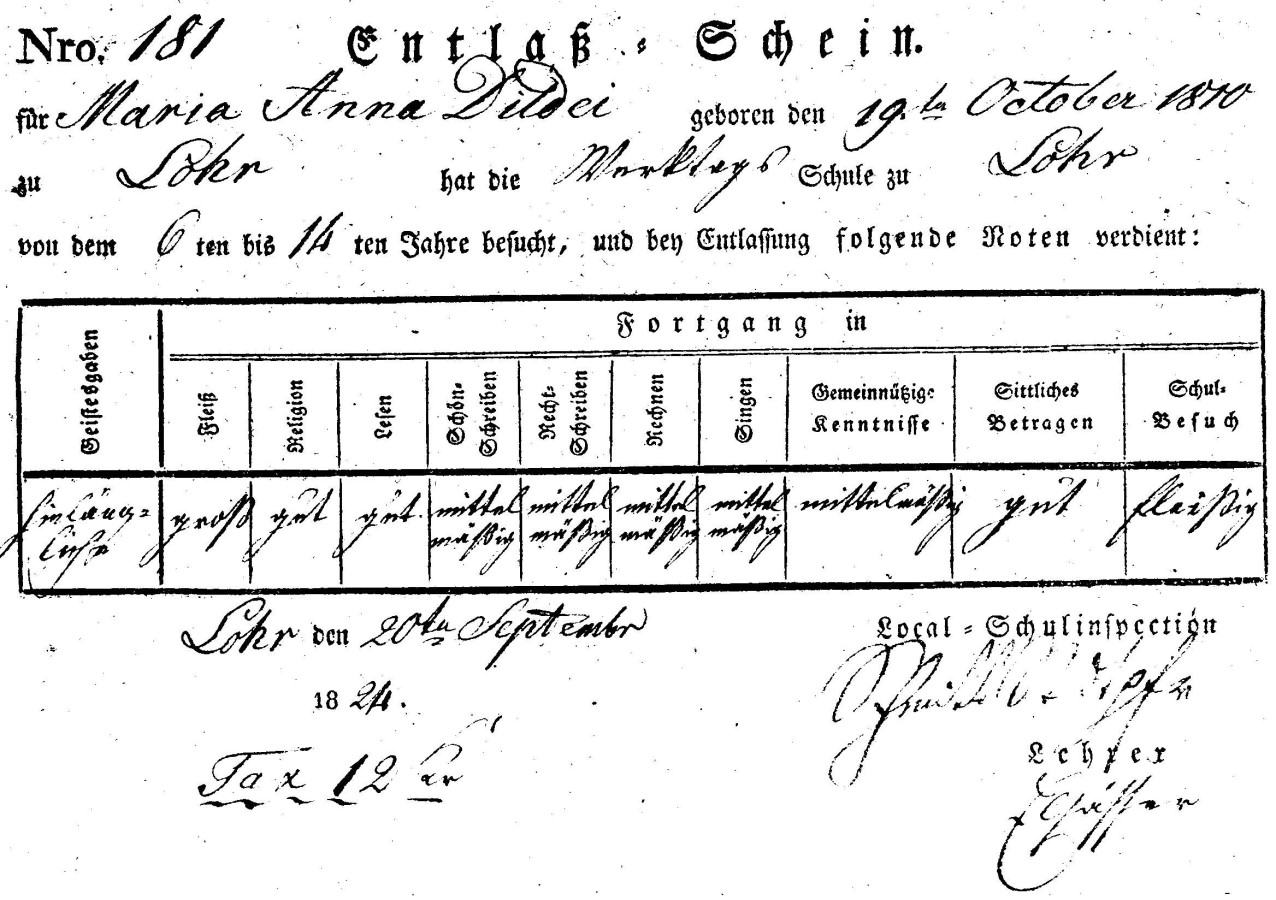 Nro. 181 Entlaß-Schein.
für Maria Anna Dildei geboren den 19.ten October 1810
zu Lohr hat die Werktags Schule zu Lohr
von dem 6 ten bis 14 ten Jahre besucht, und bey Entlassung folgende Noten verdient:
Geistesgaben
Fortgang in
Fleiß
Religion
Lesen
Schön-
Schreiben
Recht-
Schreiben
Rechnen
Singen
Gemeinnützige
Kenntnisse
Sittliches
Betragen
Schul-
Besuch
hinläng-
liche
groß
gut
gut.
mittel
mäßig
mittel
mäßig
mittel
mäßig
mittel
mäßig
mittelmäßig
gut
fleißig
Lohr den 20ten September
1824.
Tax 12 kr
Local-Schulinspection
Lehrer